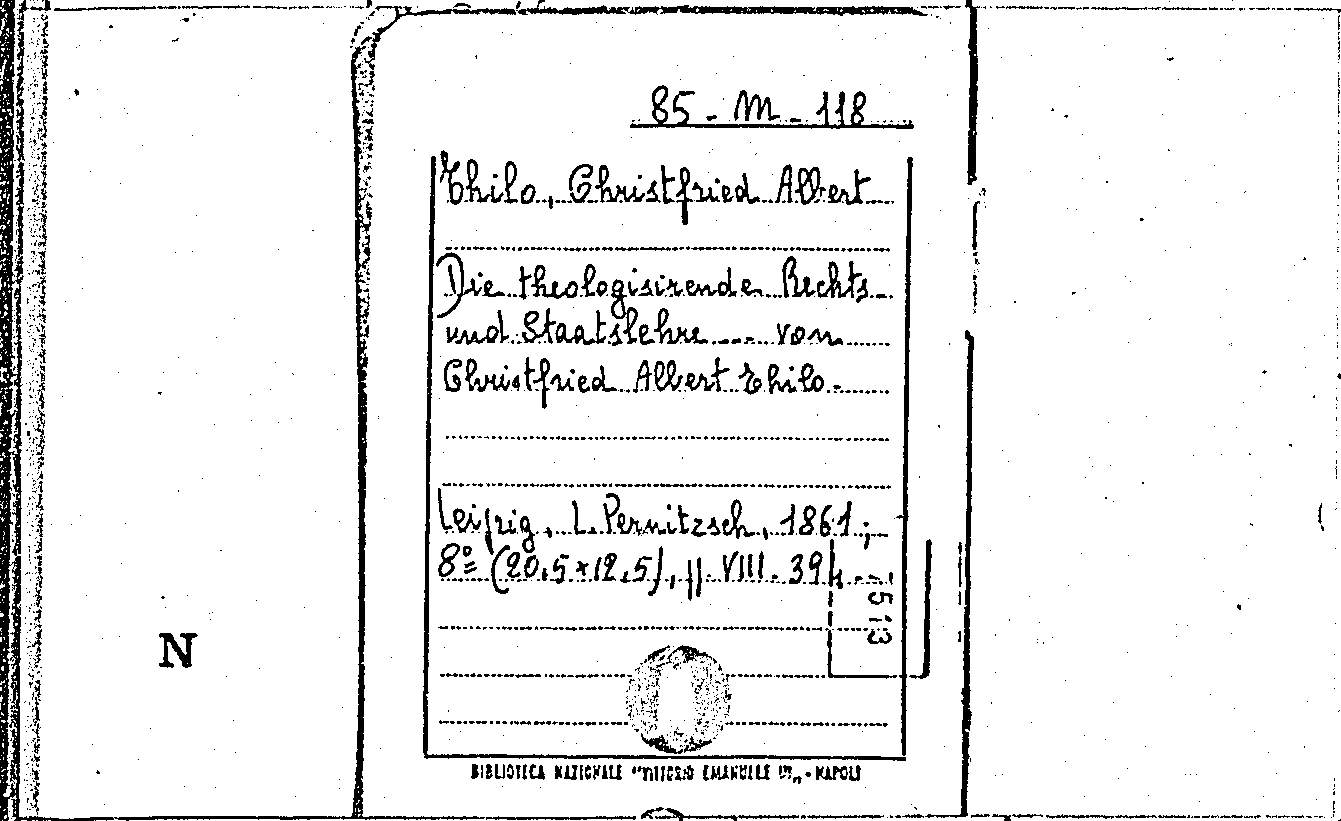 85 - M - 118
Thilo, Christfried Albert
Die theologisirende Rechts-
und Staatslehre .... von
Christfried Albert Thilo.
Leipzig, L. Pernitzsch, 1861;
8º (20,5×12,5), pp. VIII. 394.
7513
N
BIBLIOTECA NAZIONALE "VITTORIO EMANUELE III" - NAPOLI